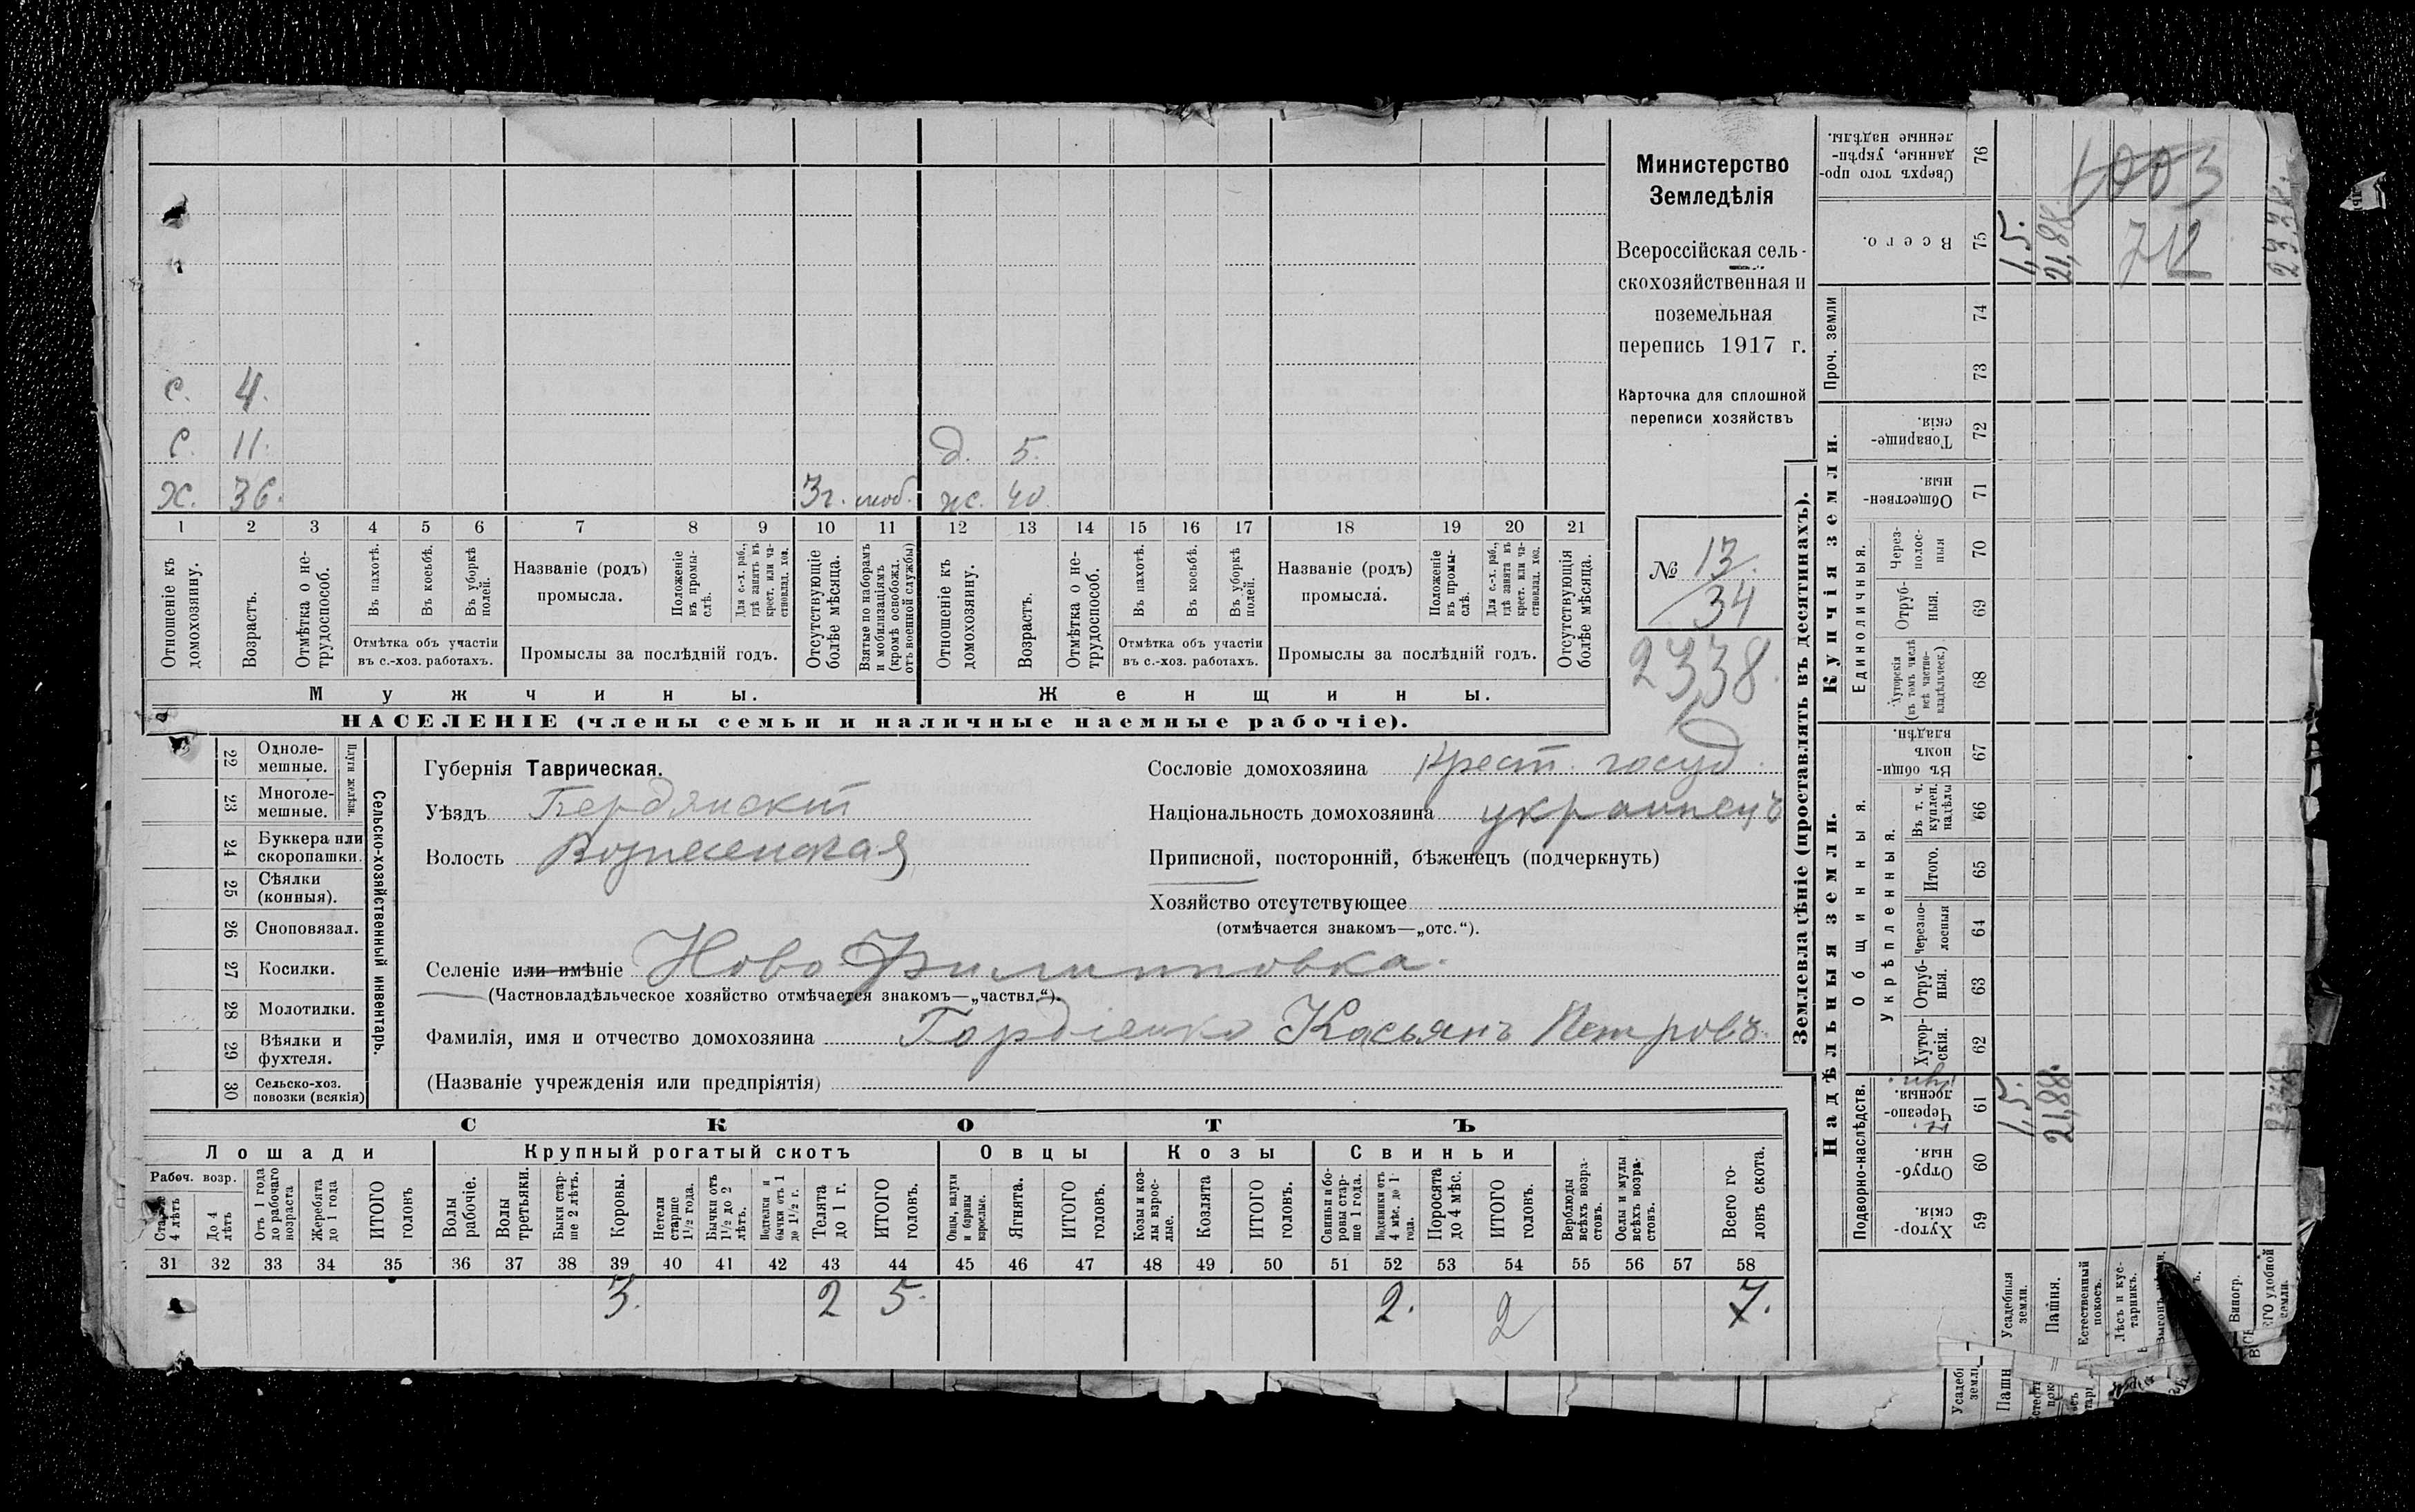 с. 4.
с. 11. д. 5.
х. 36. 3 г. моб. ж. 40.
1 2 3 4 5 6 7 8 9 10 11 12 13 14 15 16 17 18 19 20 21
Отношеніе къ домохозяину.
Возрастъ.
Отмѣтка о не-
трудоспособ.
Въ пахотѣ.
Въ косьбѣ.
Въ уборкѣ полей.
Отмѣтка объ участіи
въ с.-хоз. работахъ.
Названіе (родъ)
промысла.
Положеніе въ промы-
слѣ.
Для с.-х. раб.,
гдѣ занятъ въ
крест. или ча-
стновлад. хоз.
Промыслы за послѣдній годъ.
Отсутствующіе
болѣе мѣсяца.
Взятые по наборамъ
и мобилизаціямъ
(кромѣ освобожд.
отъ военной службы)
Отношеніе къ
домохозяину.
Возрастъ.
Отмѣтка о не-
трудоспособ.
Въ пахотѣ.
Въ косьбѣ.
Въ уборкѣ
полей.
Отмѣтка объ участіи
въ с.-хоз. работахъ.
Названіе (родъ)
промысла.
Положеніе
въ промы-
слѣ.
Для с.-х. раб.,
гдѣ занята въ
крест. или ча-
стновлад. хоз.
Промыслы за послѣдній годъ.
Отсутствующія
болѣе мѣсяца.
Мужчины.
Женщины.
НАСЕЛЕНІЕ (члены семьи и наличные наемные рабочіе).
Министерство
Земледѣлія
Всероссійская сель-
скохозяйственная и
поземельная
перепись 1917 г.
Карточка для сплошной
переписи хозяйствъ
№ 13.
34
2338.
22 Одноле-
мешные.
23 Многоле-
мешные.
Плуги желѣзн.
24 Буккера или
скоропашки.
25 Сѣялки
(конныя).
26 Сноповязал.
27 Косилки.
28 Молотилки.
29 Вѣялки и
фухтеля.
30 Сельско-хоз.
повозки (всякія)
Сельско-хозяйственный инвентарь.
Губернія Таврическая.
Уѣздъ Бердянскій
Волость Вознесенская
Сословіе домохозяина Крест. госуд.
Національность домохозяина украинецъ
Приписной, посторонній, бѣженецъ (подчеркнуть)
Хозяйство отсутствующее
(отмѣчается знакомъ—„отс.“).
Селеніе или имѣніе Ново Филипповка.
(Частновладѣльческое хозяйство отмѣчается знакомъ—„частвл.“).
Фамилія, имя и отчество домохозяина Гордіенко Касьянъ Петровъ
(Названіе учрежденія или предпріятія)
СКОТЪ
Лошади
Крупный рогатый скотъ
Овцы
Козы
Свиньи
Рабоч. возр.
4 лѣтъ
До 4
лѣтъ
Отъ 1 года
до рабочаго
возраста
Жеребята
до 1 года
ИТОГО
головъ
Волы
рабочіе.
Волы
третьяки.
Быки стар-
ше 2 лѣтъ.
Коровы.
Нетели
старше
1½ года.
Бычки отъ
1½ до 2
лѣтъ.
Подтелки и
бычки отъ 1
до 1½ г.
Телята
до 1 г.
ИТОГО
головъ.
Овцы, валухи
и бараны
взрослые.
Ягнята.
ИТОГО
головъ.
Козы и коз-
лы взрос-
лые.
Козлята
ИТОГО
головъ.
Свиньи и бо-
ровы стар-
ше 1 года.
Подсвинки отъ
4 мѣс. до 1
года.
Поросята
до 4 мѣс.
ИТОГО
головъ.
Верблюды
всѣхъ возра-
стовъ.
Ослы и мулы
всѣхъ возра-
стовъ.
Всего го-
ловъ скота.
31 32 33 34 35 36 37 38 39 40 41 42 43 44 45 46 47 48 49 50 51 52 53 54 55 56 57 58
3. 2 5. 2. 2 7.
Землевладѣніе (проставлять въ десятинахъ).
Купчія земли.
Надѣльныя земли.
Сверхъ того про-
данные, укрѣп-
ленные надѣлы.
76
1003
Всего.
75
1,5.
21,88.
712
23,38.
Проч. земли
74
73
Товарище-
скія.
72
Обществен-
ныя.
71
Единоличныя.
Через-
полос-
ныя
70
Отруб-
ныя.
69
Хуторскія
(въ томъ числѣ
всѣ частно-
владѣльческ.)
68
Общинныя.
Въ общи-
номъ
владѣн.
67
Укрѣпленныя.
Въ т. ч.
куплен.
надѣлы
66
Итого.
65
Черезпо-
лосныя
64
Отруб-
ныя.
63
Хутор-
скія.
62
Подворно-наслѣдств.
Черезпо-
лосныя.
61
1,5.
21,88.
Отруб-
ныя.
60
Хутор-
скія.
59
Усадебныя
земли.
Пашня.
Естественный
покосъ.
Лѣсъ и кус-
тарникъ.
Виногр.
удобной
земли.